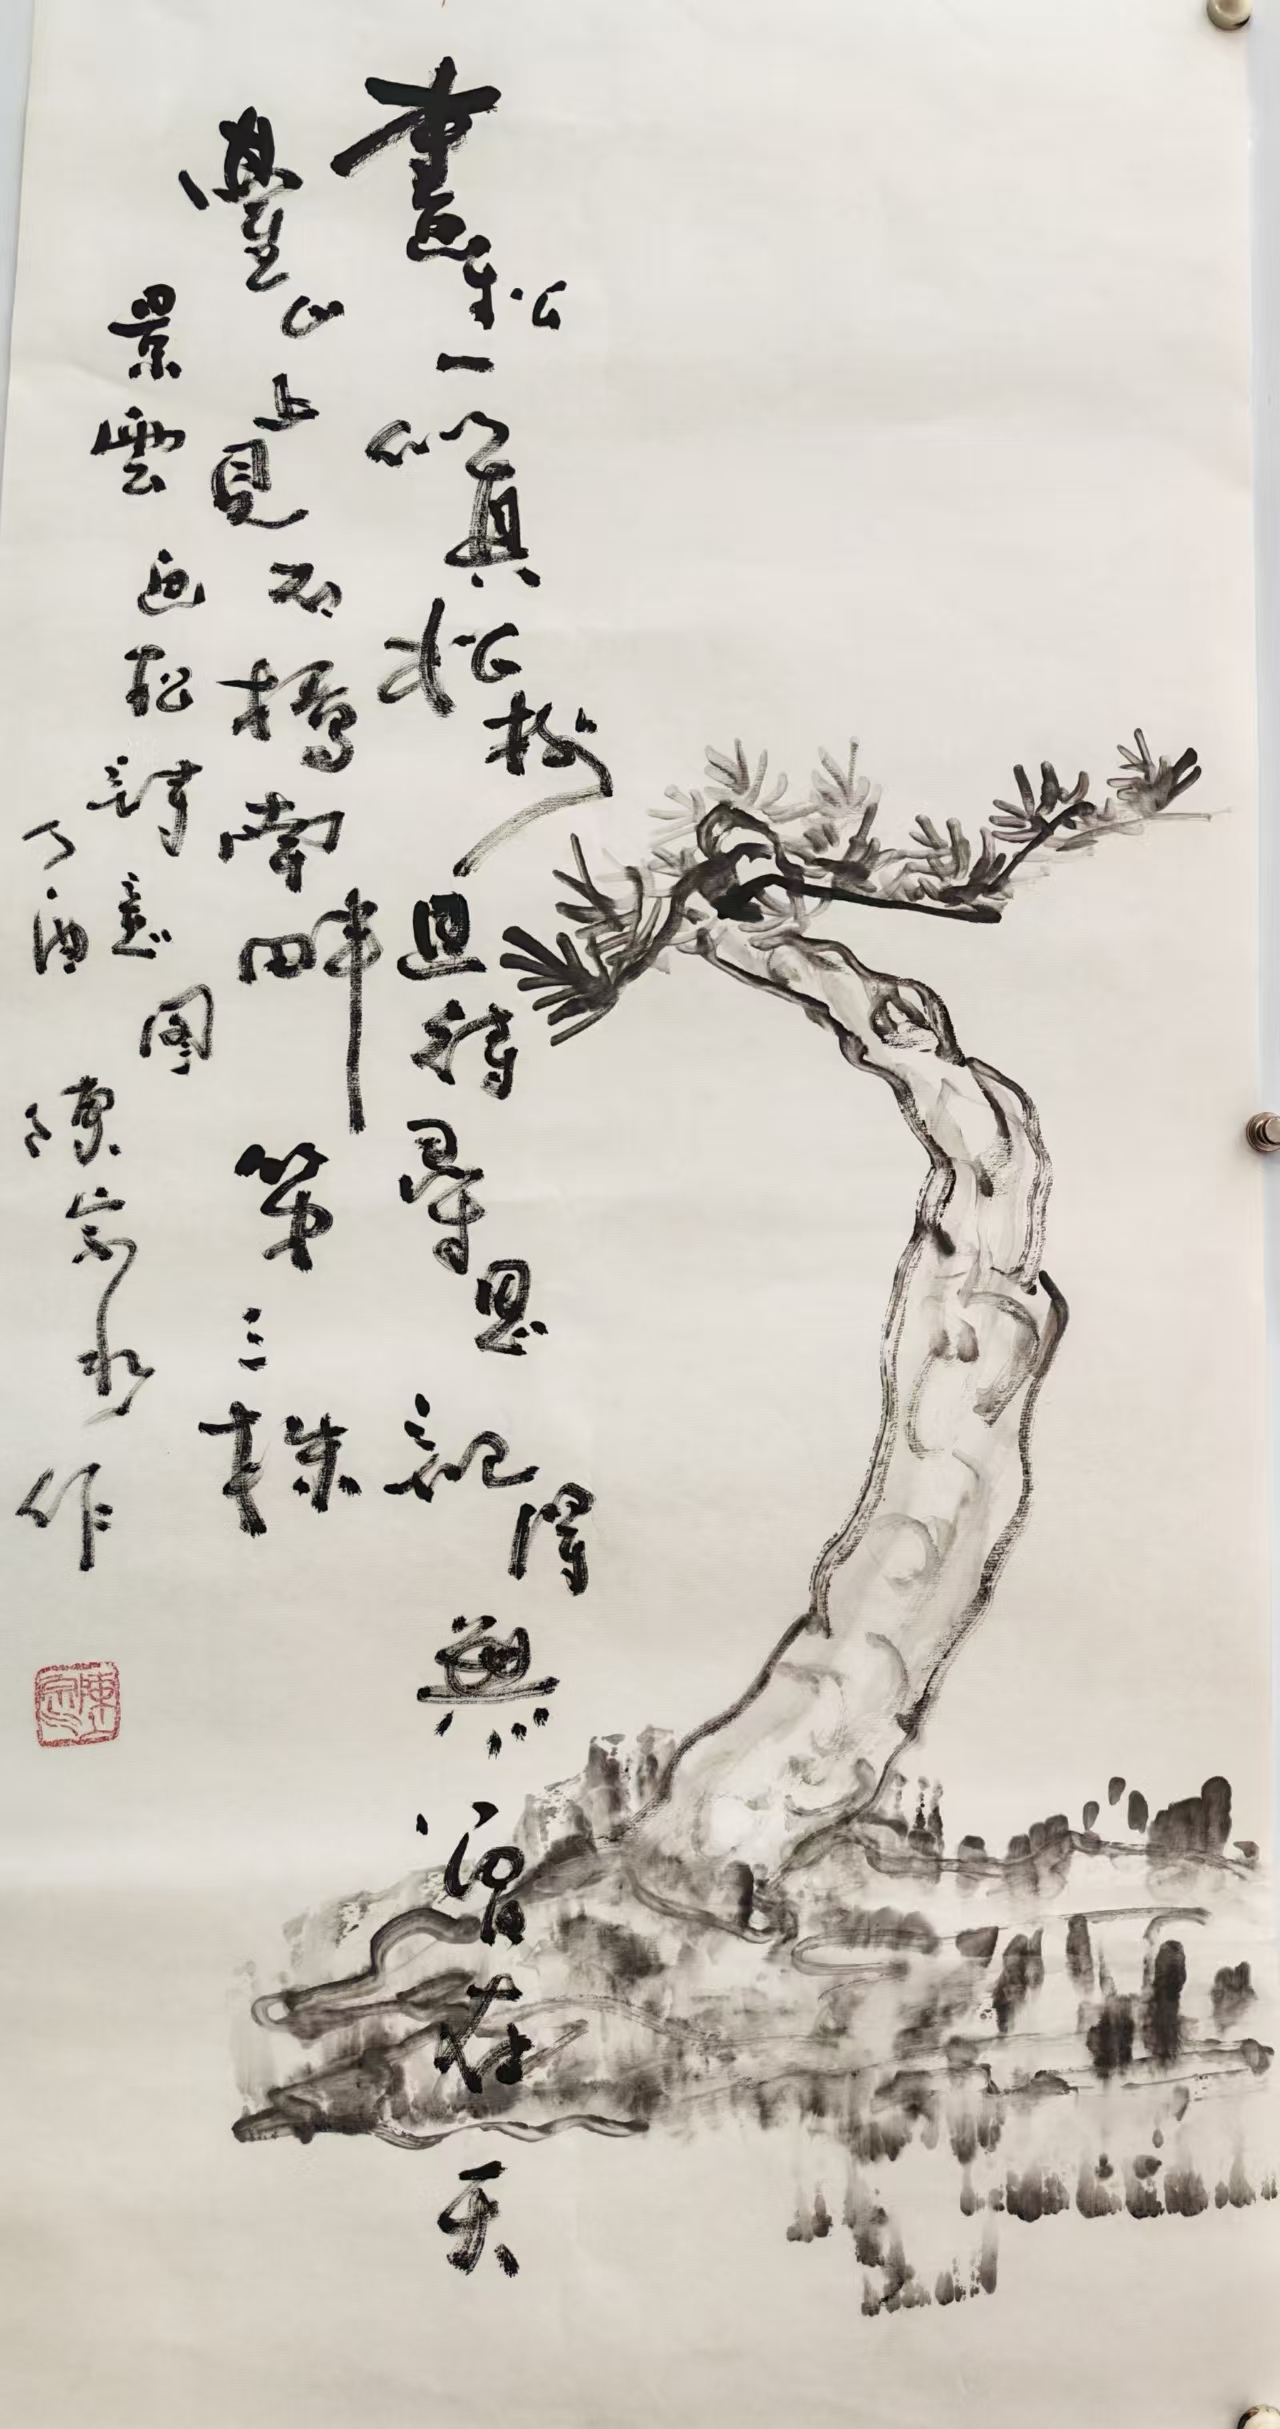 畫松一似真松樹且待尋思記得無曾在天
臺山上見石橋南畔第三株
景雲画松詩意图
丁酉陳作